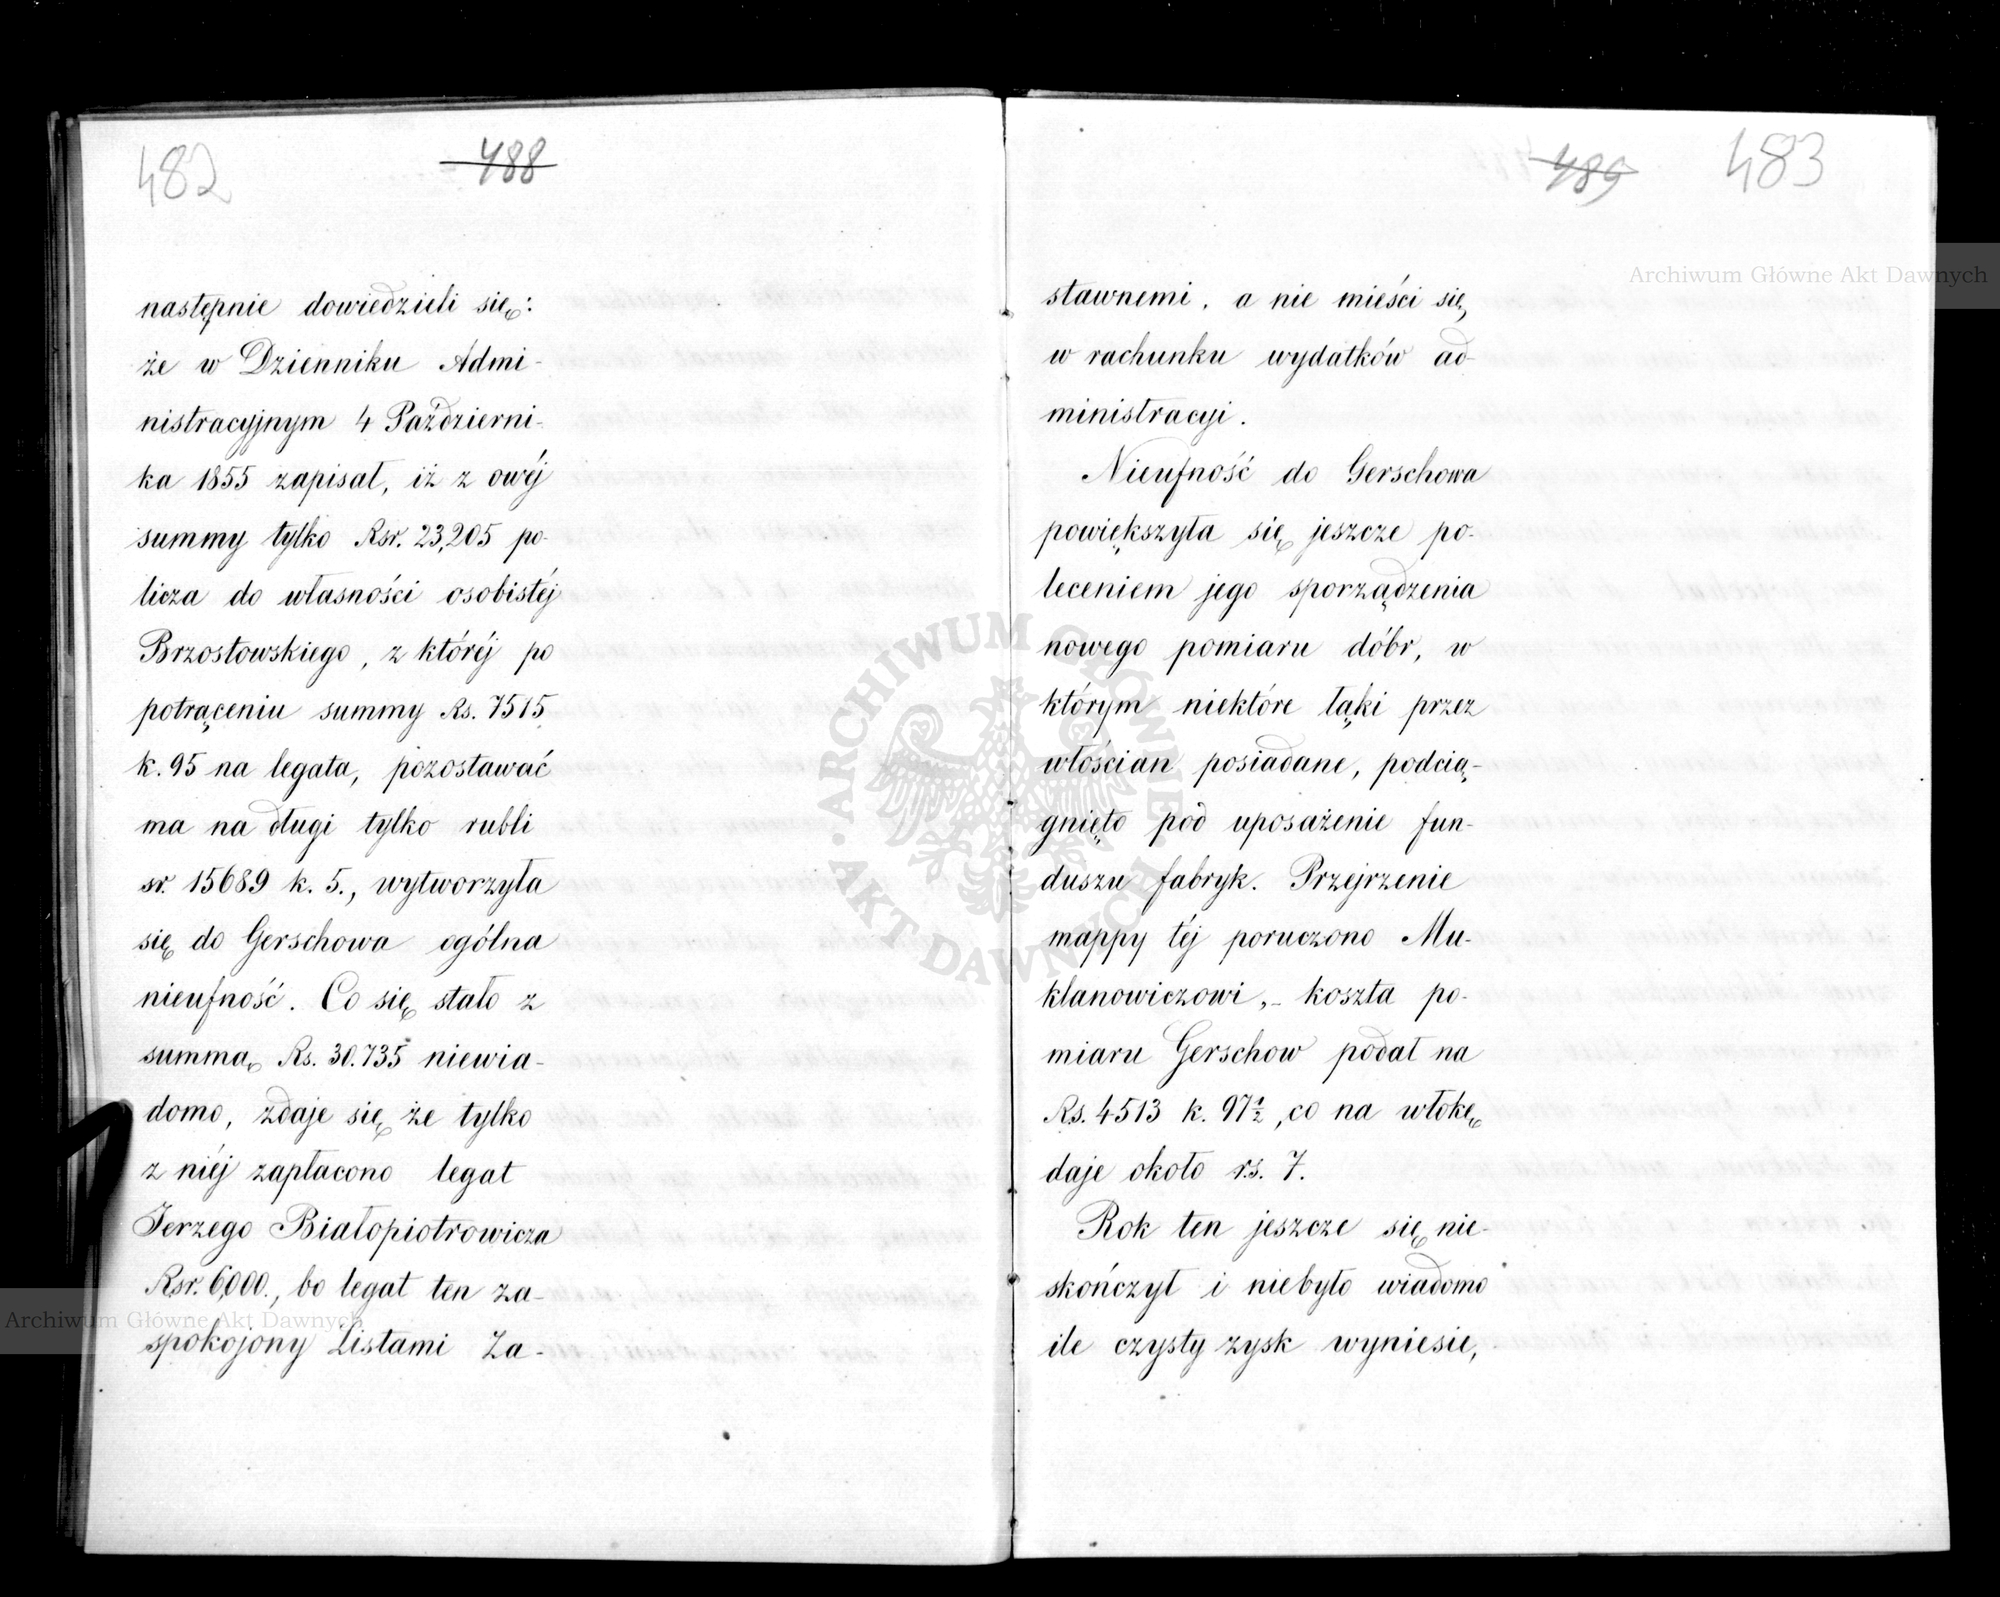 482
488
następnie dowiedzieli się:
że w Dzienniku Admi-
nistracyjnym 4 Październi-
ka 1855 zapisał, iż z owéj
summy tylko Rsr. 23,205 po-
licza do własności osobistéj
Brzostowskiego, z któréj po
potrąceniu summy Rs. 7515
k. 95 na legata, pozostawać
ma na długi tylko rubli
sr. 15689 k. 5., wytworzyła
się do Gerschowa ogólna
nieufność. Co się stało z
summą Rs. 30.735 niewia-
domo, zdaje się że tylko
z niéj zapłacono legat
Jerzego Białopiotrowicza
Rsr. 6,000., bo legat ten za-
spokojony Listami Za-
489
483
stawnemi, a nie mieści się
w rachunku wydatków ad-
ministracyi.
Nieufność do Gerschowa
powiększyła się jeszcze po-
leceniem jego sporządzenia
nowego pomiaru dóbr, w
którym niektóre łąki przez
włościan posiadane, podcią-
gnięto pod uposażenie fun-
duszu fabryk. Przejrzenie
mappy téj poruczono Mu-
klanowiczowi,- koszta po-
miaru Gerschow podał na
Rs. 4513 k. 97½, co na włokę
daje około rs. 7.
Rok ten jeszcze się nie-
skończył i niebyło wiadomo
ile czysty zysk wyniesie,
Archiwum Główne Akt Dawnych
Archiwum Główne Akt Dawnych
ARCHIWUM GŁÓWNE AKT DAWNYCH